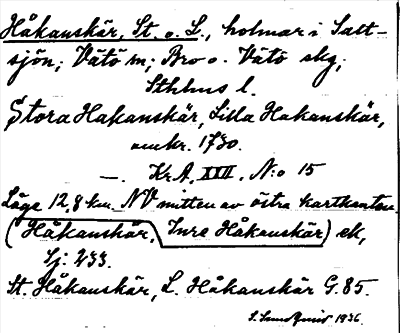 Håkanskär, St. o. L., holmar i Salt-
sjön; Vätö sn; Bro o. Vätö skg,
Sthlms l.
Stora Hakanskär, Lilla Hakanskär,
omkr. 1730.
—. Kr A. XXII. N:o 15
Läge 12,8 km. NV mitten av östra kartkanten.
(Håkanskär, Inre Håkanskär) ek,
Sj: 233.
St. Håkanskär, L. Håkanskär G. 85.
1936.